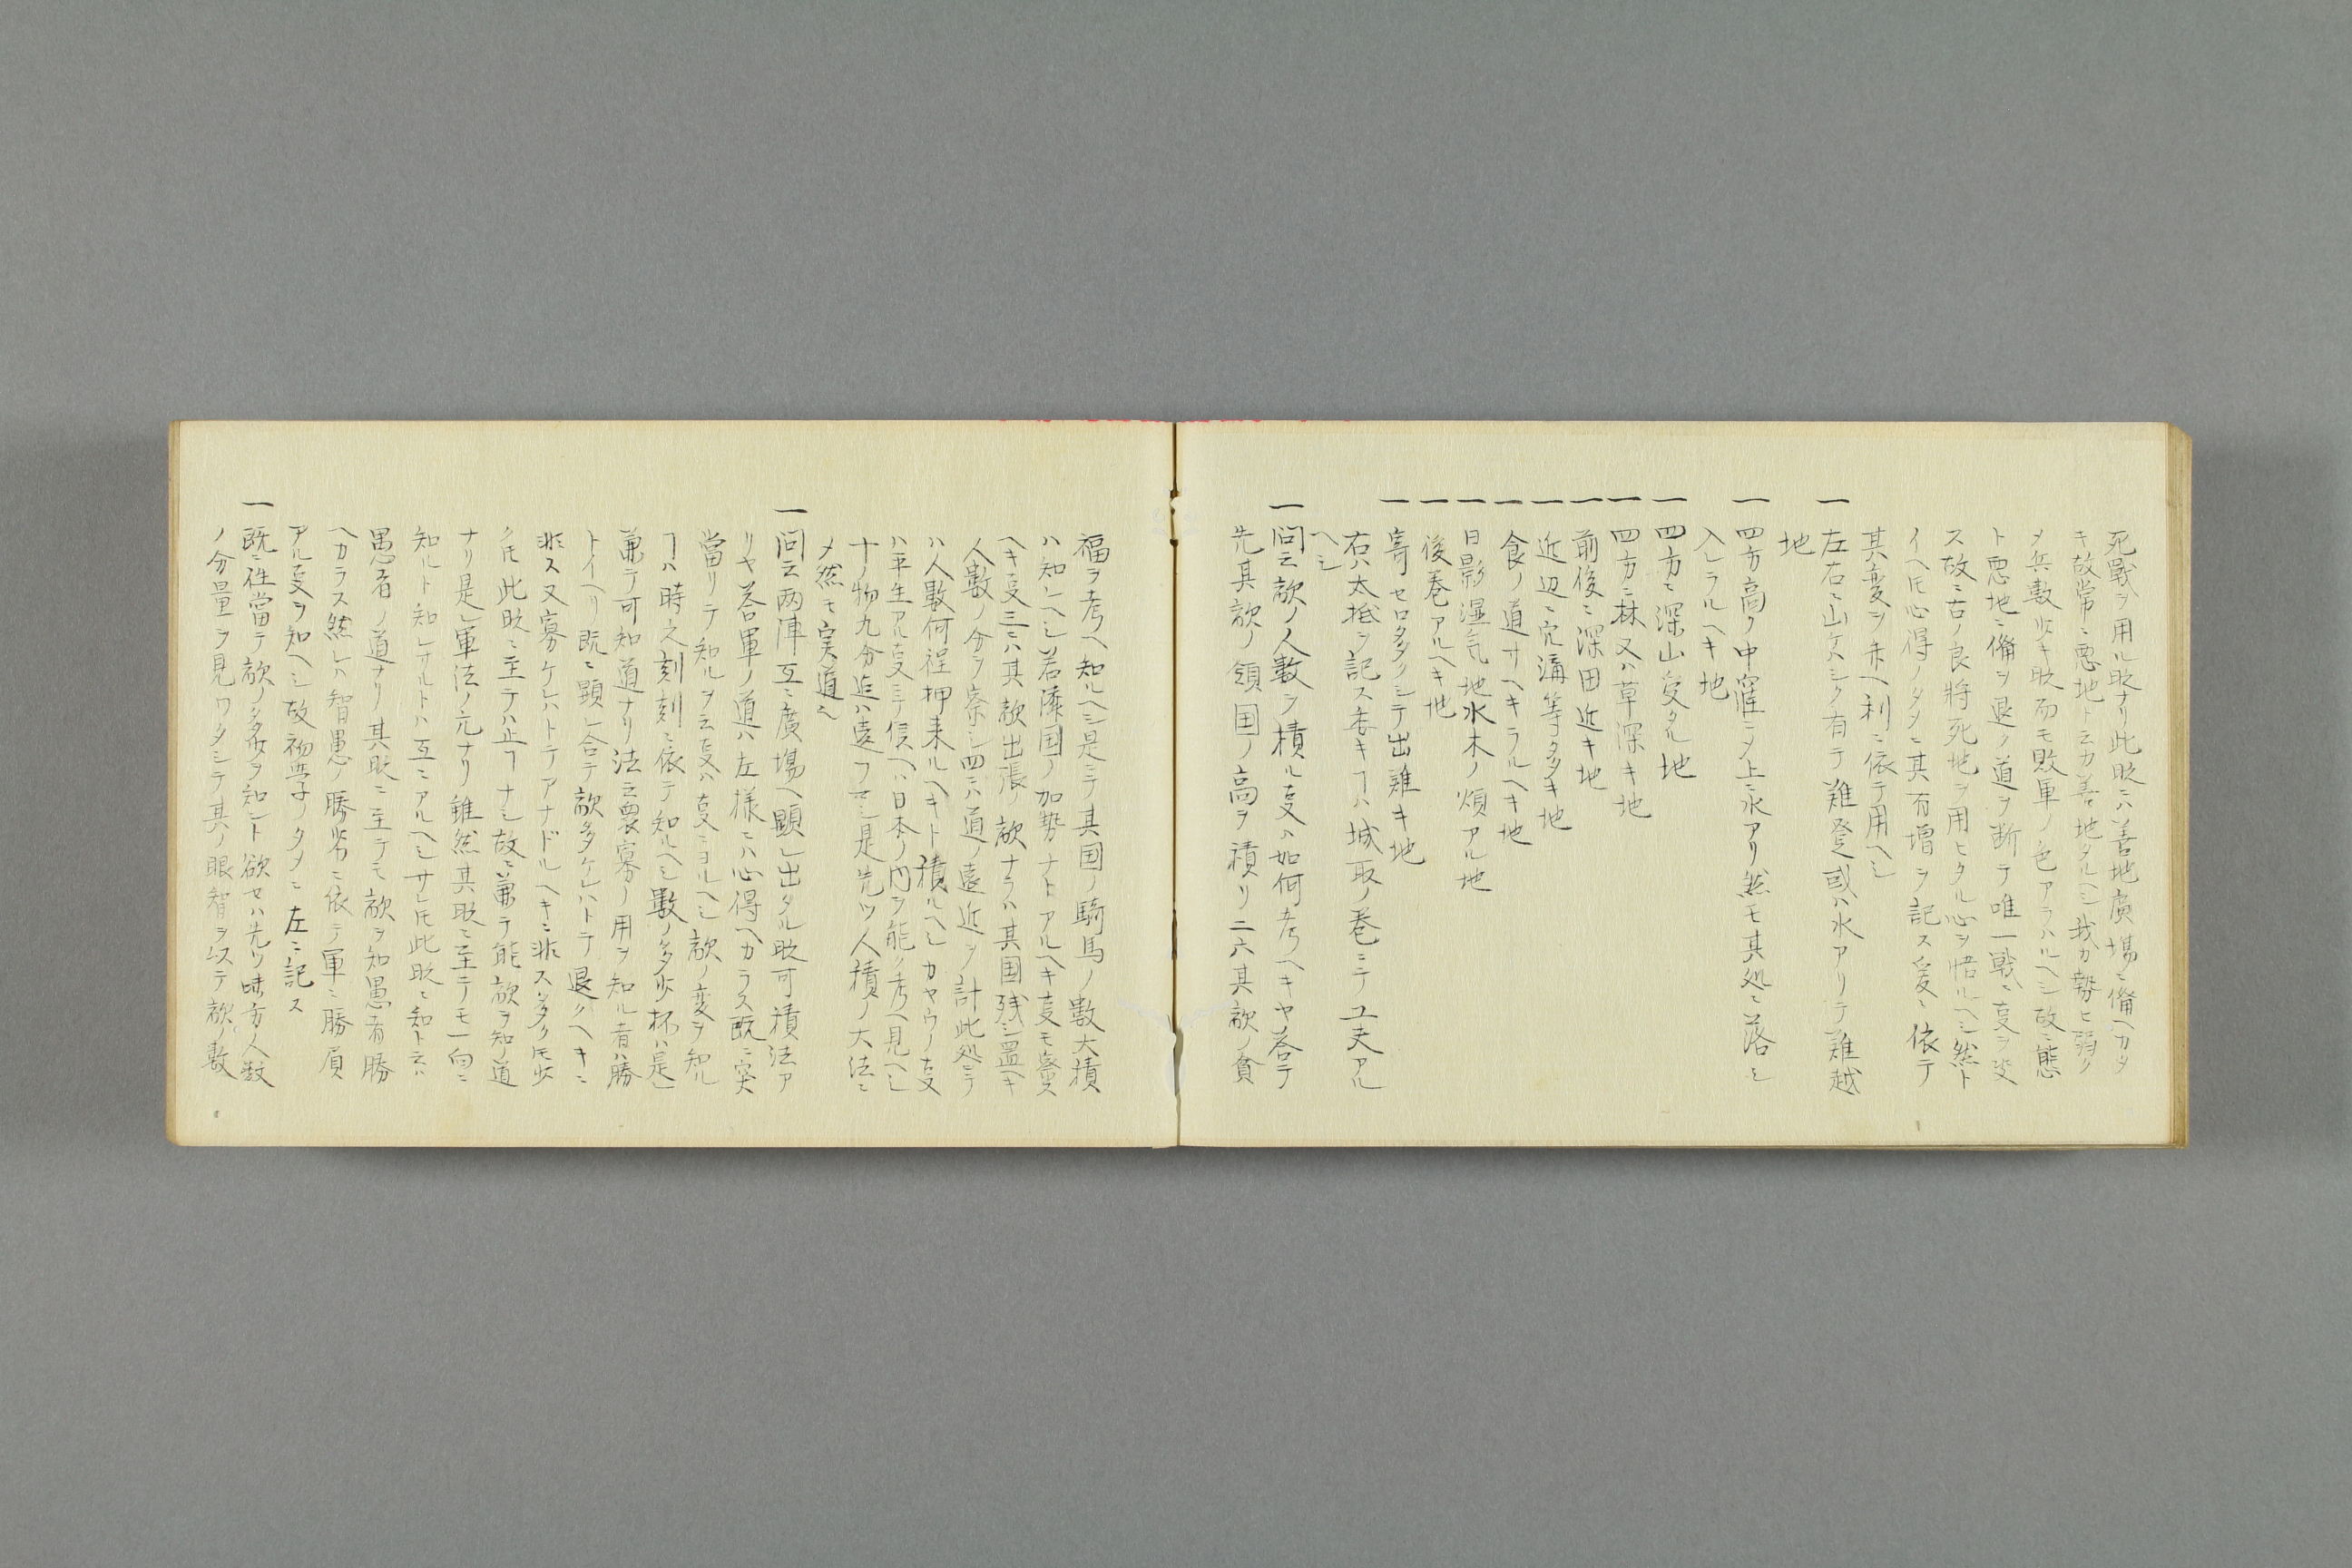 死戰ヲ用ル時ナリ此時ニハ善地廣場ニ備ヘカタ
キ故常ニ悪地ト云カ善地タルヘシ我カ勢ヒ弱ク
メ兵數少キ時而モ敗軍ノ色アラハルヘシ故ニ態
ト悪地ニ備ヲ退ノ道ヲ断テ唯一戦ニ叓ヲ决
ス故ニ古ノ良將死地ヲ用ヒタル心ヲ悟ルヘシ然ト
イヘ𪜈心得ノタメニ其有増ヲ記ス爰ニ依テ
其変ヲ考ヘ利ニ依テ用ヘシ
一 左右ニ山ケハシク有テ難登或ハ水アリテ難越
地
一 四方高ク中窪ニメ上ニ水アリ然モ其処ニ落シ
入レラルヘキ地
一 四方ニ深山受タル地
一 四方ニ林又ハ草深キ地
一 前後ニ深田近キ地
一 近辺ニ穴溝等多キ地
一 食ノ道サヘキラルヘキ地
一 日影湿気地水木ノ煩アル地
一 後巻アルヘキ地
一 寄セ口多クシテ出難キ地
右ハ太抵ヲ記ス委キヿハ城取ノ巻ニテ工夫アル
ヘシ
一 問云敵ノ人數ヲ積ル叓ハ如何考ヘキヤ答テ
先其敵ノ領国ノ高ヲ積リ二六其敵ノ貧
福ヲ考ヘ知ルヘシ是ニテ其国ノ騎馬ノ數大積
ハ知レヘシ若隣国ノ加勢ナトアルヘキ叓モ察ス
ヘキ叓三ニハ其敵出張ノ敵ナラハ其国残シ置ヘキ
人數ノ分ヲ察シ四ニハ道ノ遠近ヲ計此処ニテ
ハ人數何程押来ルヘキト積ルヘシカヤウノ叓
ハ平生アル叓ニテ候ヘハ日本ノ内ヲ能ク考ヘ見ヘシ
十ノ物九分迄ハ違フマシ是先ツ人積ノ大法ニ
メ然モ実道也
一 問云両陣互ニ廣場ヘ顕レ出タル時可積法ア
リヤ答軍ノ道ハ左様ニハ心得ヘカラス既ニ実
當リテ知ルヲ云叓ハ叓ニヨルヘシ敵ノ変ヲ知ル
ヿハ時之刻刻ニ依テ知ルヘシ數ノ多少杯ハ是
兼テ可知道ナリ法云衆寡ノ用ヲ知ル者ハ勝
トイヘリ既ニ顕レ合テ敵多ケレハトテ退クヘキニ
非ス又寡ケレハトテアナドルヘキニ非ス多ク𪜈少
ク𪜈此時ニ至テハ止ヿナシ故ニ兼テ能敵ヲ知ノ道
ナリ是レ軍法ノ元ナリ雖然其時ニ至テモ一向ニ
知ルト知レサルトハ互ニアルヘシサレ𪜈此時ニ知ト云ハ
愚者ノ道ナリ其時ニ至テモ敵ヲ知愚者勝
ヘカラス然レハ智愚ノ勝劣ニ依テ軍ニ勝負
アル叓ヲ知ヘシ故初学子ノタメニ左ニ記ス
一 既ニ往當テ敵ノ多少ヲ知ント欲セハ先ツ味方人数
ノ分量ヲ見ワタシテ其ノ眼智ヲ以テ敵ノ數